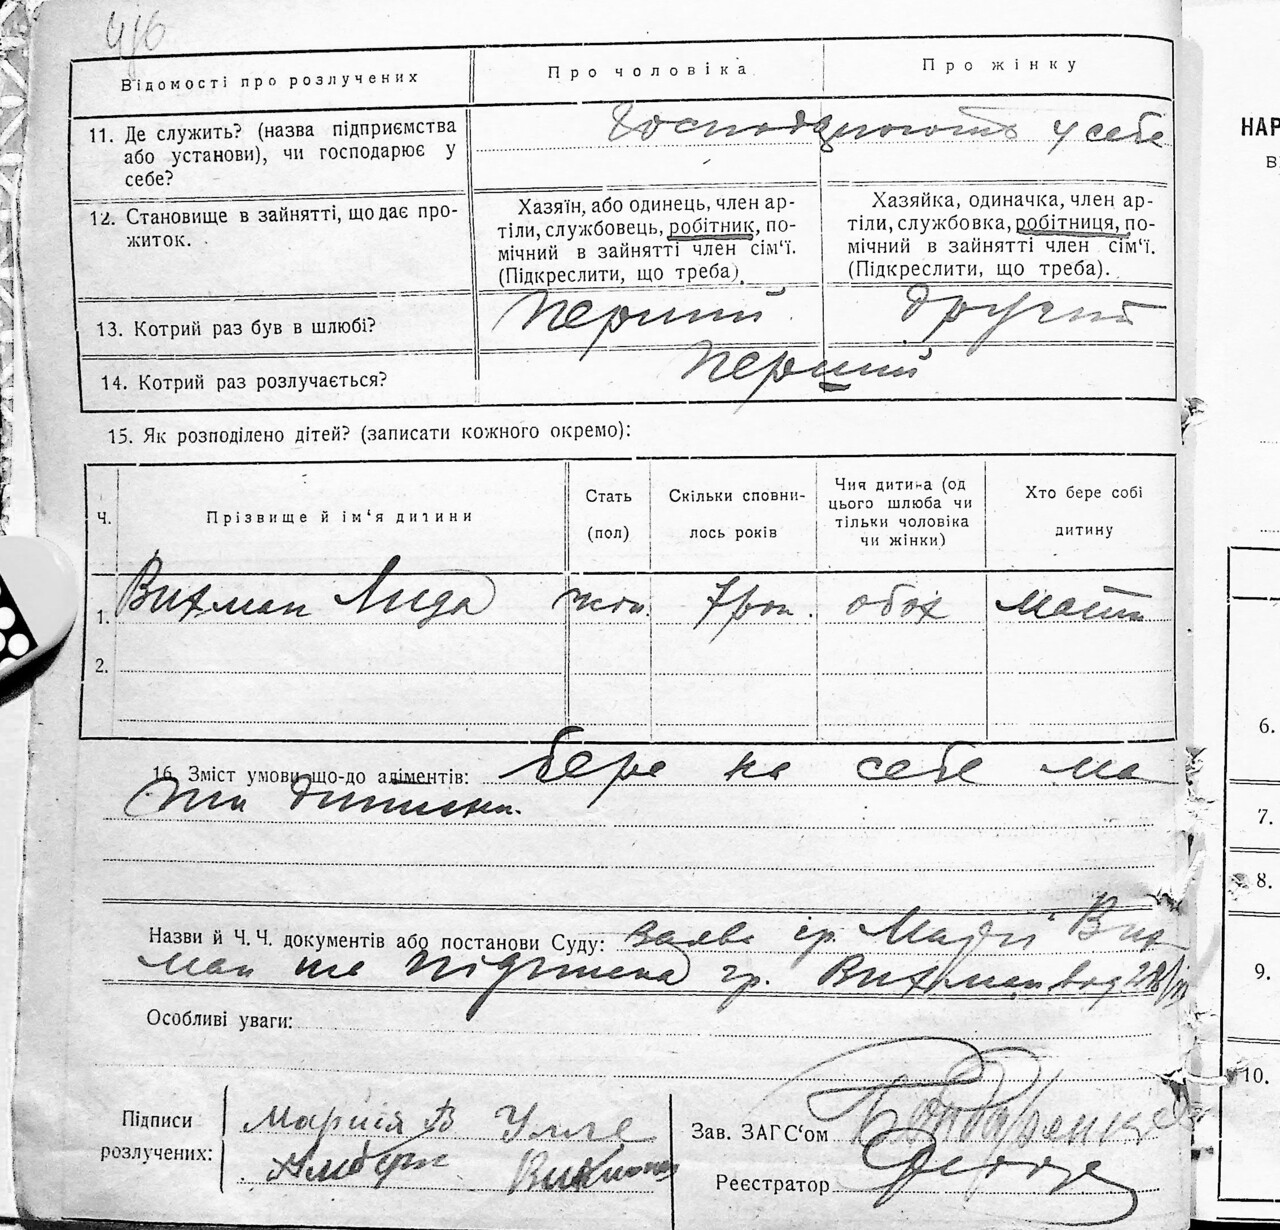 Відомості про розлучених
Про чоловіка
Про жінку
11. Де служить? (назва підприємства
або установи), чи господарює у
себе?
Господарюють у себе
12. Становище в зайнятті, що дає про-
житок.
Хазяїн, або одинець, член ар-
тіли, службовець, робітник, по-
мічний в зайнятті член сім'ї.
(Підкреслити, що треба).
Хазяйка, одиначка, член ар-
тіли, службовка, робітниця, по-
мічний в зайнятті член сім'ї.
(Підкреслити, що треба).
13. Котрий раз був в шлюбі?
Перший
другий
14. Котрий раз розлучається?
Перший
15. Як розподілено дітей? (записати кожного окремо):
Ч.
Прізвище й ім'я дитини
Стать
(пол)
Скільки сповни-
лось років
Чия дитина (од
цього шлюба чи
тільки чоловіка
чи жінки)
Хто бере собі
дитину
1. Вихман Лида жін. 7 рок. обох мати
2.
16. Зміст умови що-до аліментів: бере на себе ма
ти дитини.
Назви й Ч. Ч. документів або постанови Суду: заява гр. Марії Вих
ман та підписка гр. Вихман від
Особливі уваги:
Підписи
розлучених:
Марисія В
Вихман
Зав. ЗАГС'ом Бондаренко
Реєстратор
НАР
В
6.
7.
8.
9.
10.